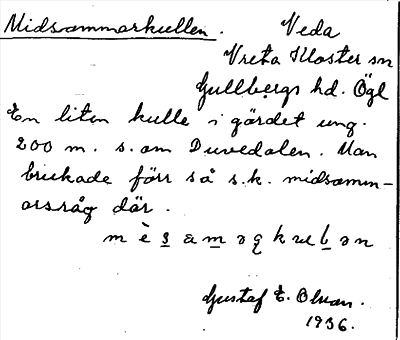 Midsommarkullen. Veda
Vreta Kloster sn
Gullbergs hd. Ögl
En liten kulle i gärdet ung.
200 m. s. om Duvedalen. Man
brukade förr så s.k. midsomm-
arsråg där.
Gustaf E. Olson.
1936.